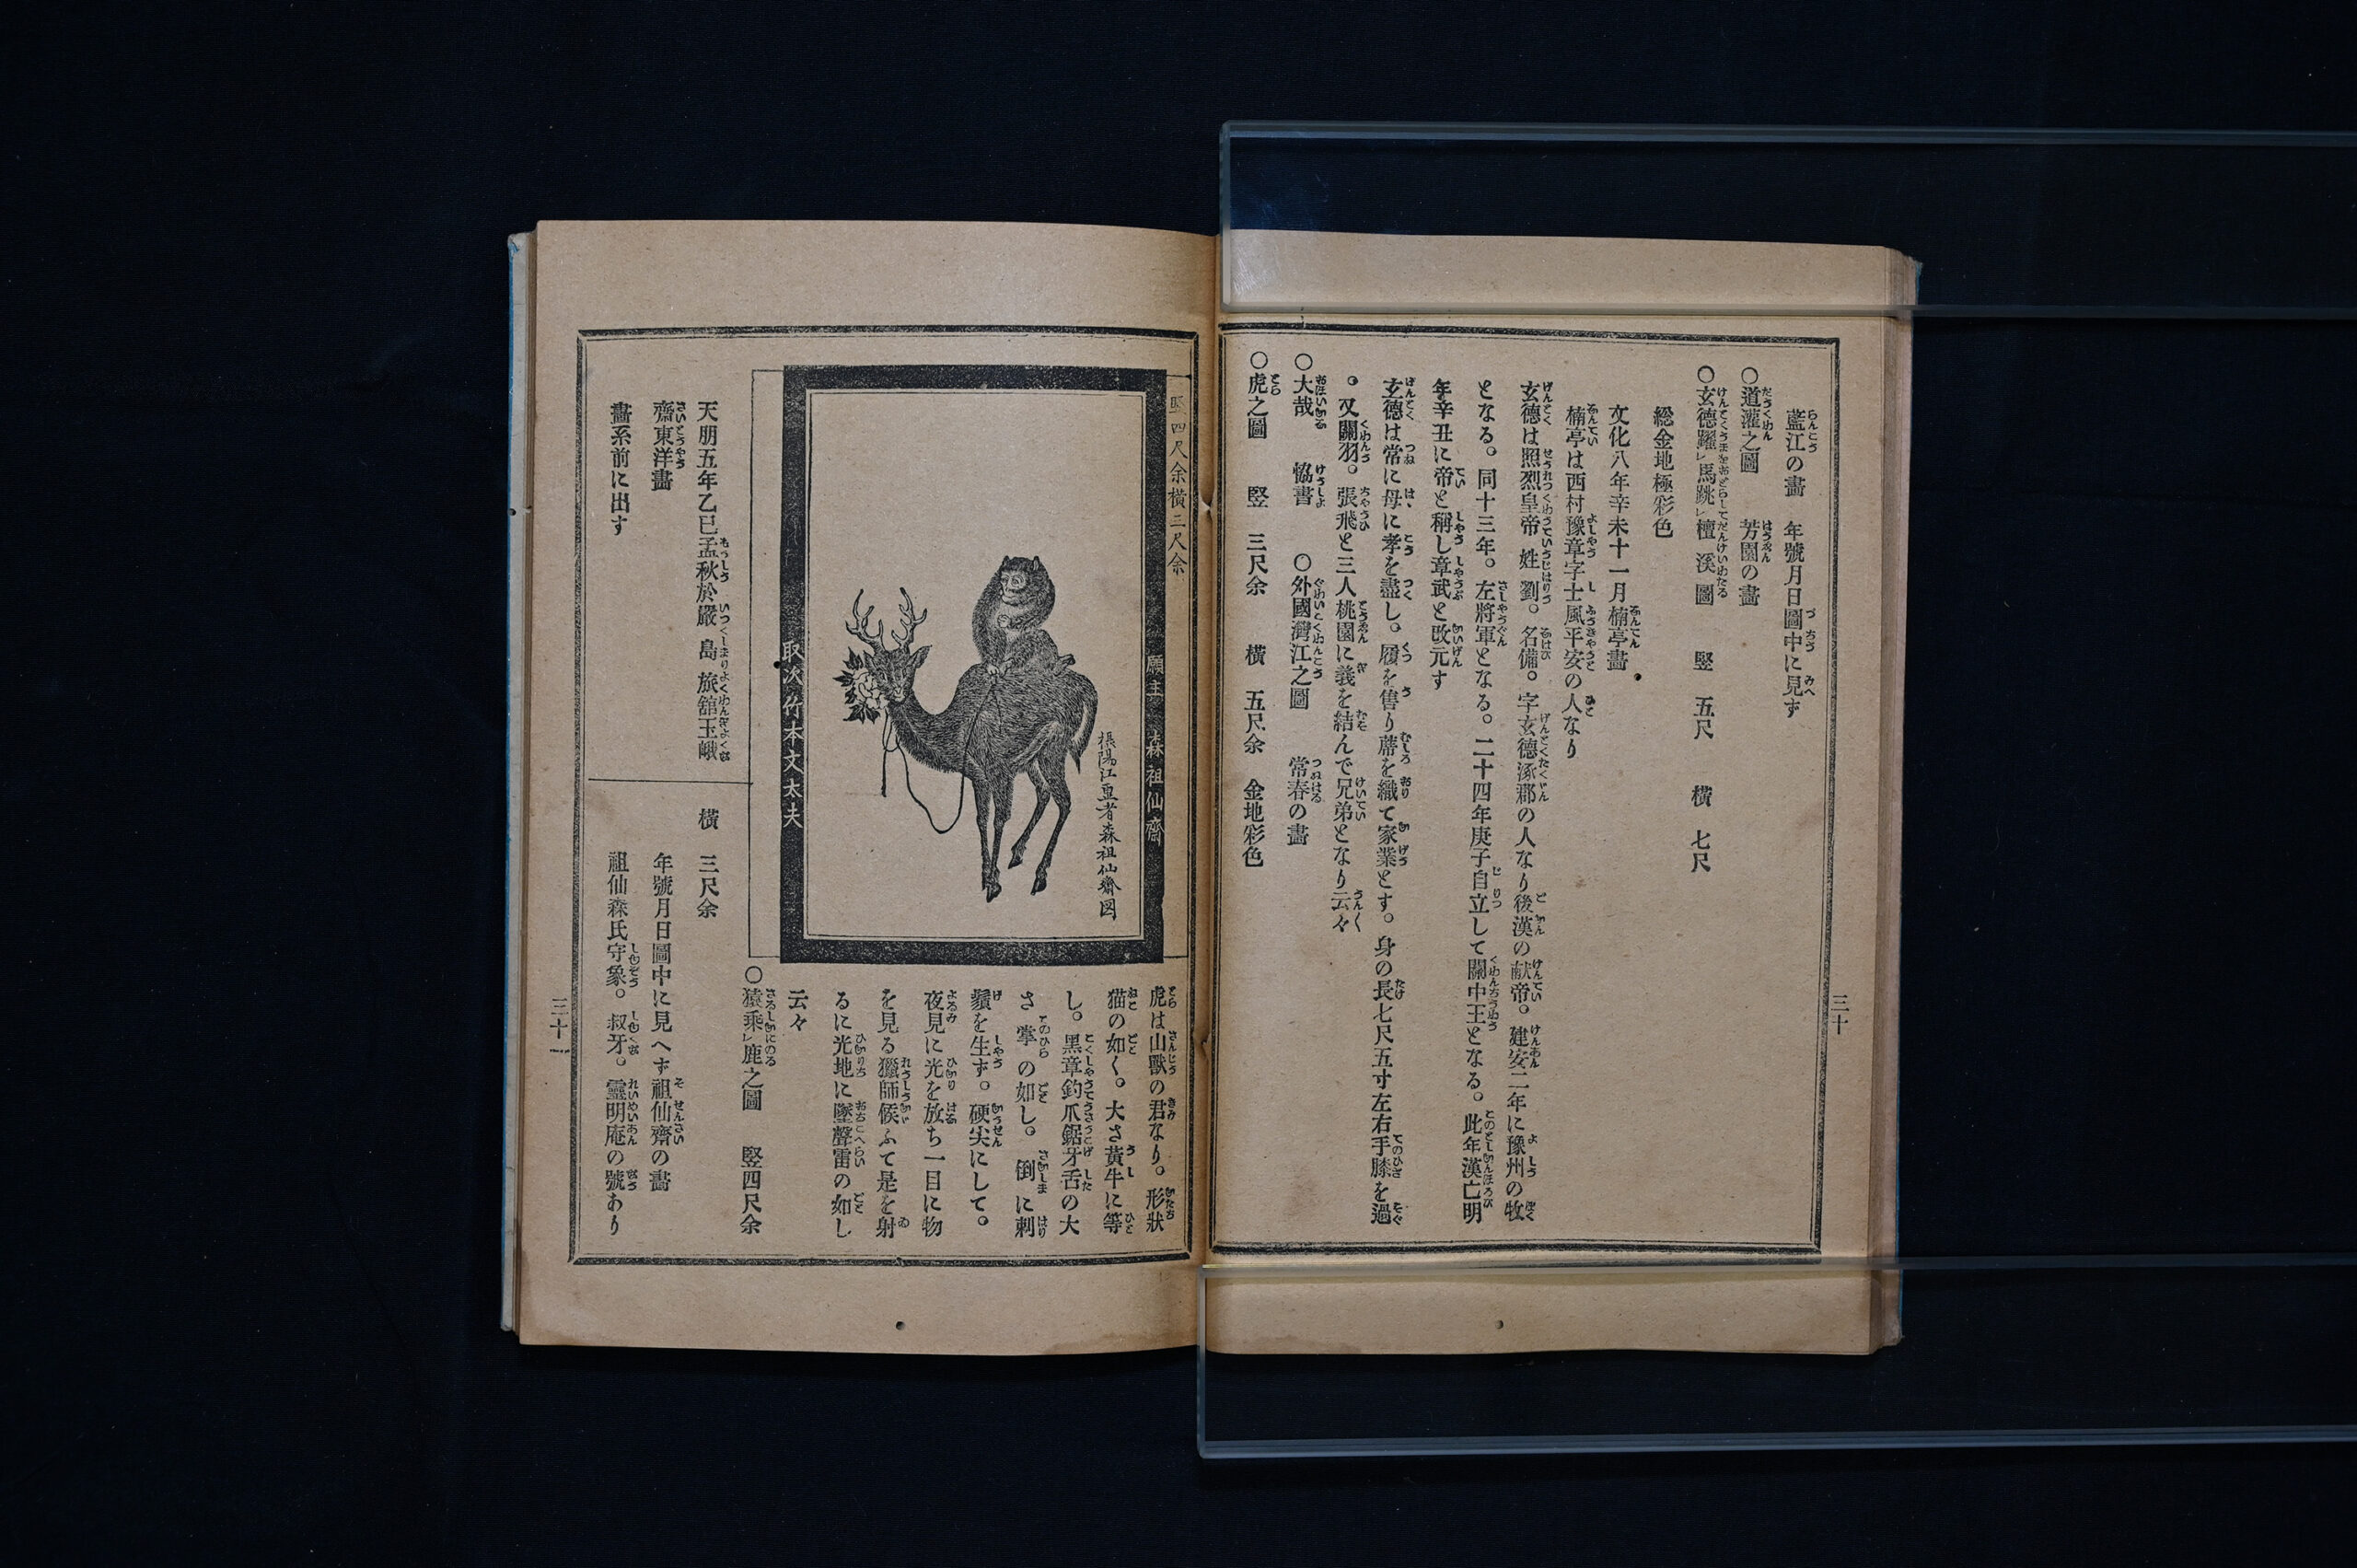 藍江の畵　年號月日圖中に見へず
〇道灌之圖　芳園の畵
〇玄德躍レ馬跳レ檀溪圖　竪　五尺　橫　七尺
総金地極彩色
文化八年辛未十一月楠亭畵
楠亭は西村豫章字士風平安の人なり
玄德は照烈皇帝姓劉。名備。字玄德涿郡の人なり後漢の献帝。建安二年に豫州の牧
となる。同十三年。左將軍となる。二十四年庚子自立して關中王となる。此年漢亡明
年辛丑に帝と稱し章武と改元す
玄德は常に母に孝を盡し。履を售り蓆を織て家業とす。身の長七尺五寸左右手膝を過
。又關羽。張飛と三人桃園に義を結んで兄弟となり云々
〇大哉　恊書　〇外國灣江之圖　常春の畵
〇虎之圖　竪　三尺余　橫　五尺余　金地彩色
三十
竪四尺余橫三尺余
願主　森祖仙齋
摂陽江畫者森祖仙齋図
取次竹本文太夫
虎は山獸の君なり。形狀
猫の如く。大さ黃牛に等
し。黑章釣爪鋸牙舌の大
さ掌の如し。倒に刺
鬚を生ず。硬尖にして。
夜見に光を放ち一目に物
を見る獵師候ふて是を射
るに光地に墜聲雷の如し
云々
〇猿乘レ鹿之圖　竪四尺余
橫　三尺余
年號月日圖中に見へず祖仙齋の畵
祖仙森氏守象。叔牙。靈明庵の號あり
天朋五年乙巳孟秋於嚴島旅舘玉峨
齋東洋畵
畵系前に出す
三十一